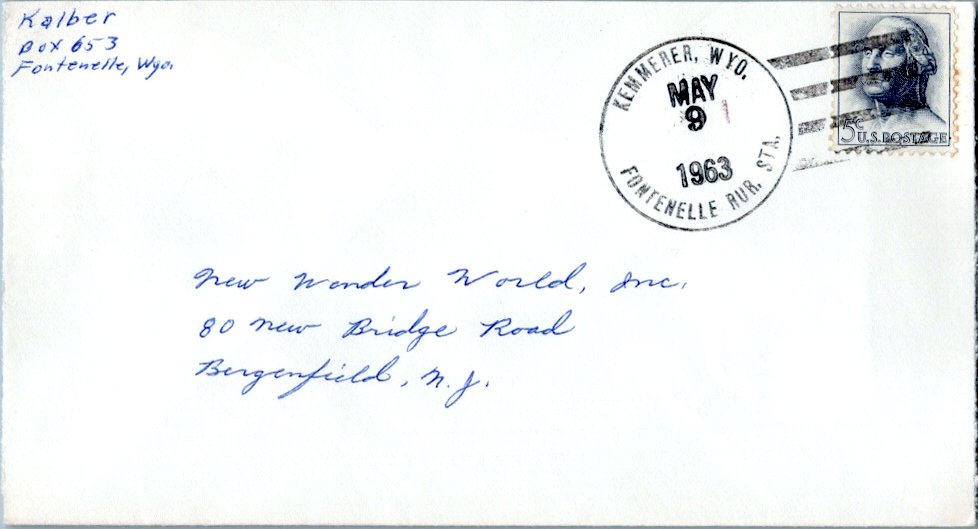 Kalber
Box 653
Fontenelle, Wyo.
KEMMERER, WYO.
MAY
9
1963
FONTENELLE RUR. STA.
5c U.S. POSTAGE
New Wonder World, Inc.
80 New Bridge Road
Bergenfield, N.J.